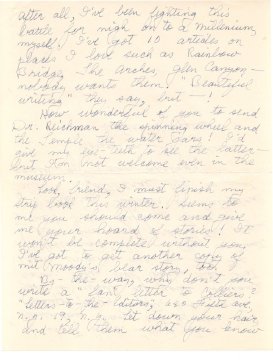 After all, I've been fighting this
battle for nigh on to a millenium,
myself! I've got 10 articles on
places I love such as Rainbow
Bridge, The Arches, Glen Canyon—
nobody wants them! "Beautiful
writing" they say, but —!
How wonderful of you to send
Dr. the spinning wheel and
the Temple the water jars! I'd
give my eye-teeth to see the latter—
but I'm not welcome even in the
museum.
Look, friend, I must finish my
strip book this winter. Seems to
me you should come and give
me your hoard of stories! It
won't be complete without you.
I've got to get another copy of
Mit Moody's bear story, too.
By-the-way, why don't you
write a "fan" letter to Colliers?
"Letters-to-the-Editors," 640 Fifth Ave,
N.Y. 19, N.Y. Let down your hair
and tell them what you know